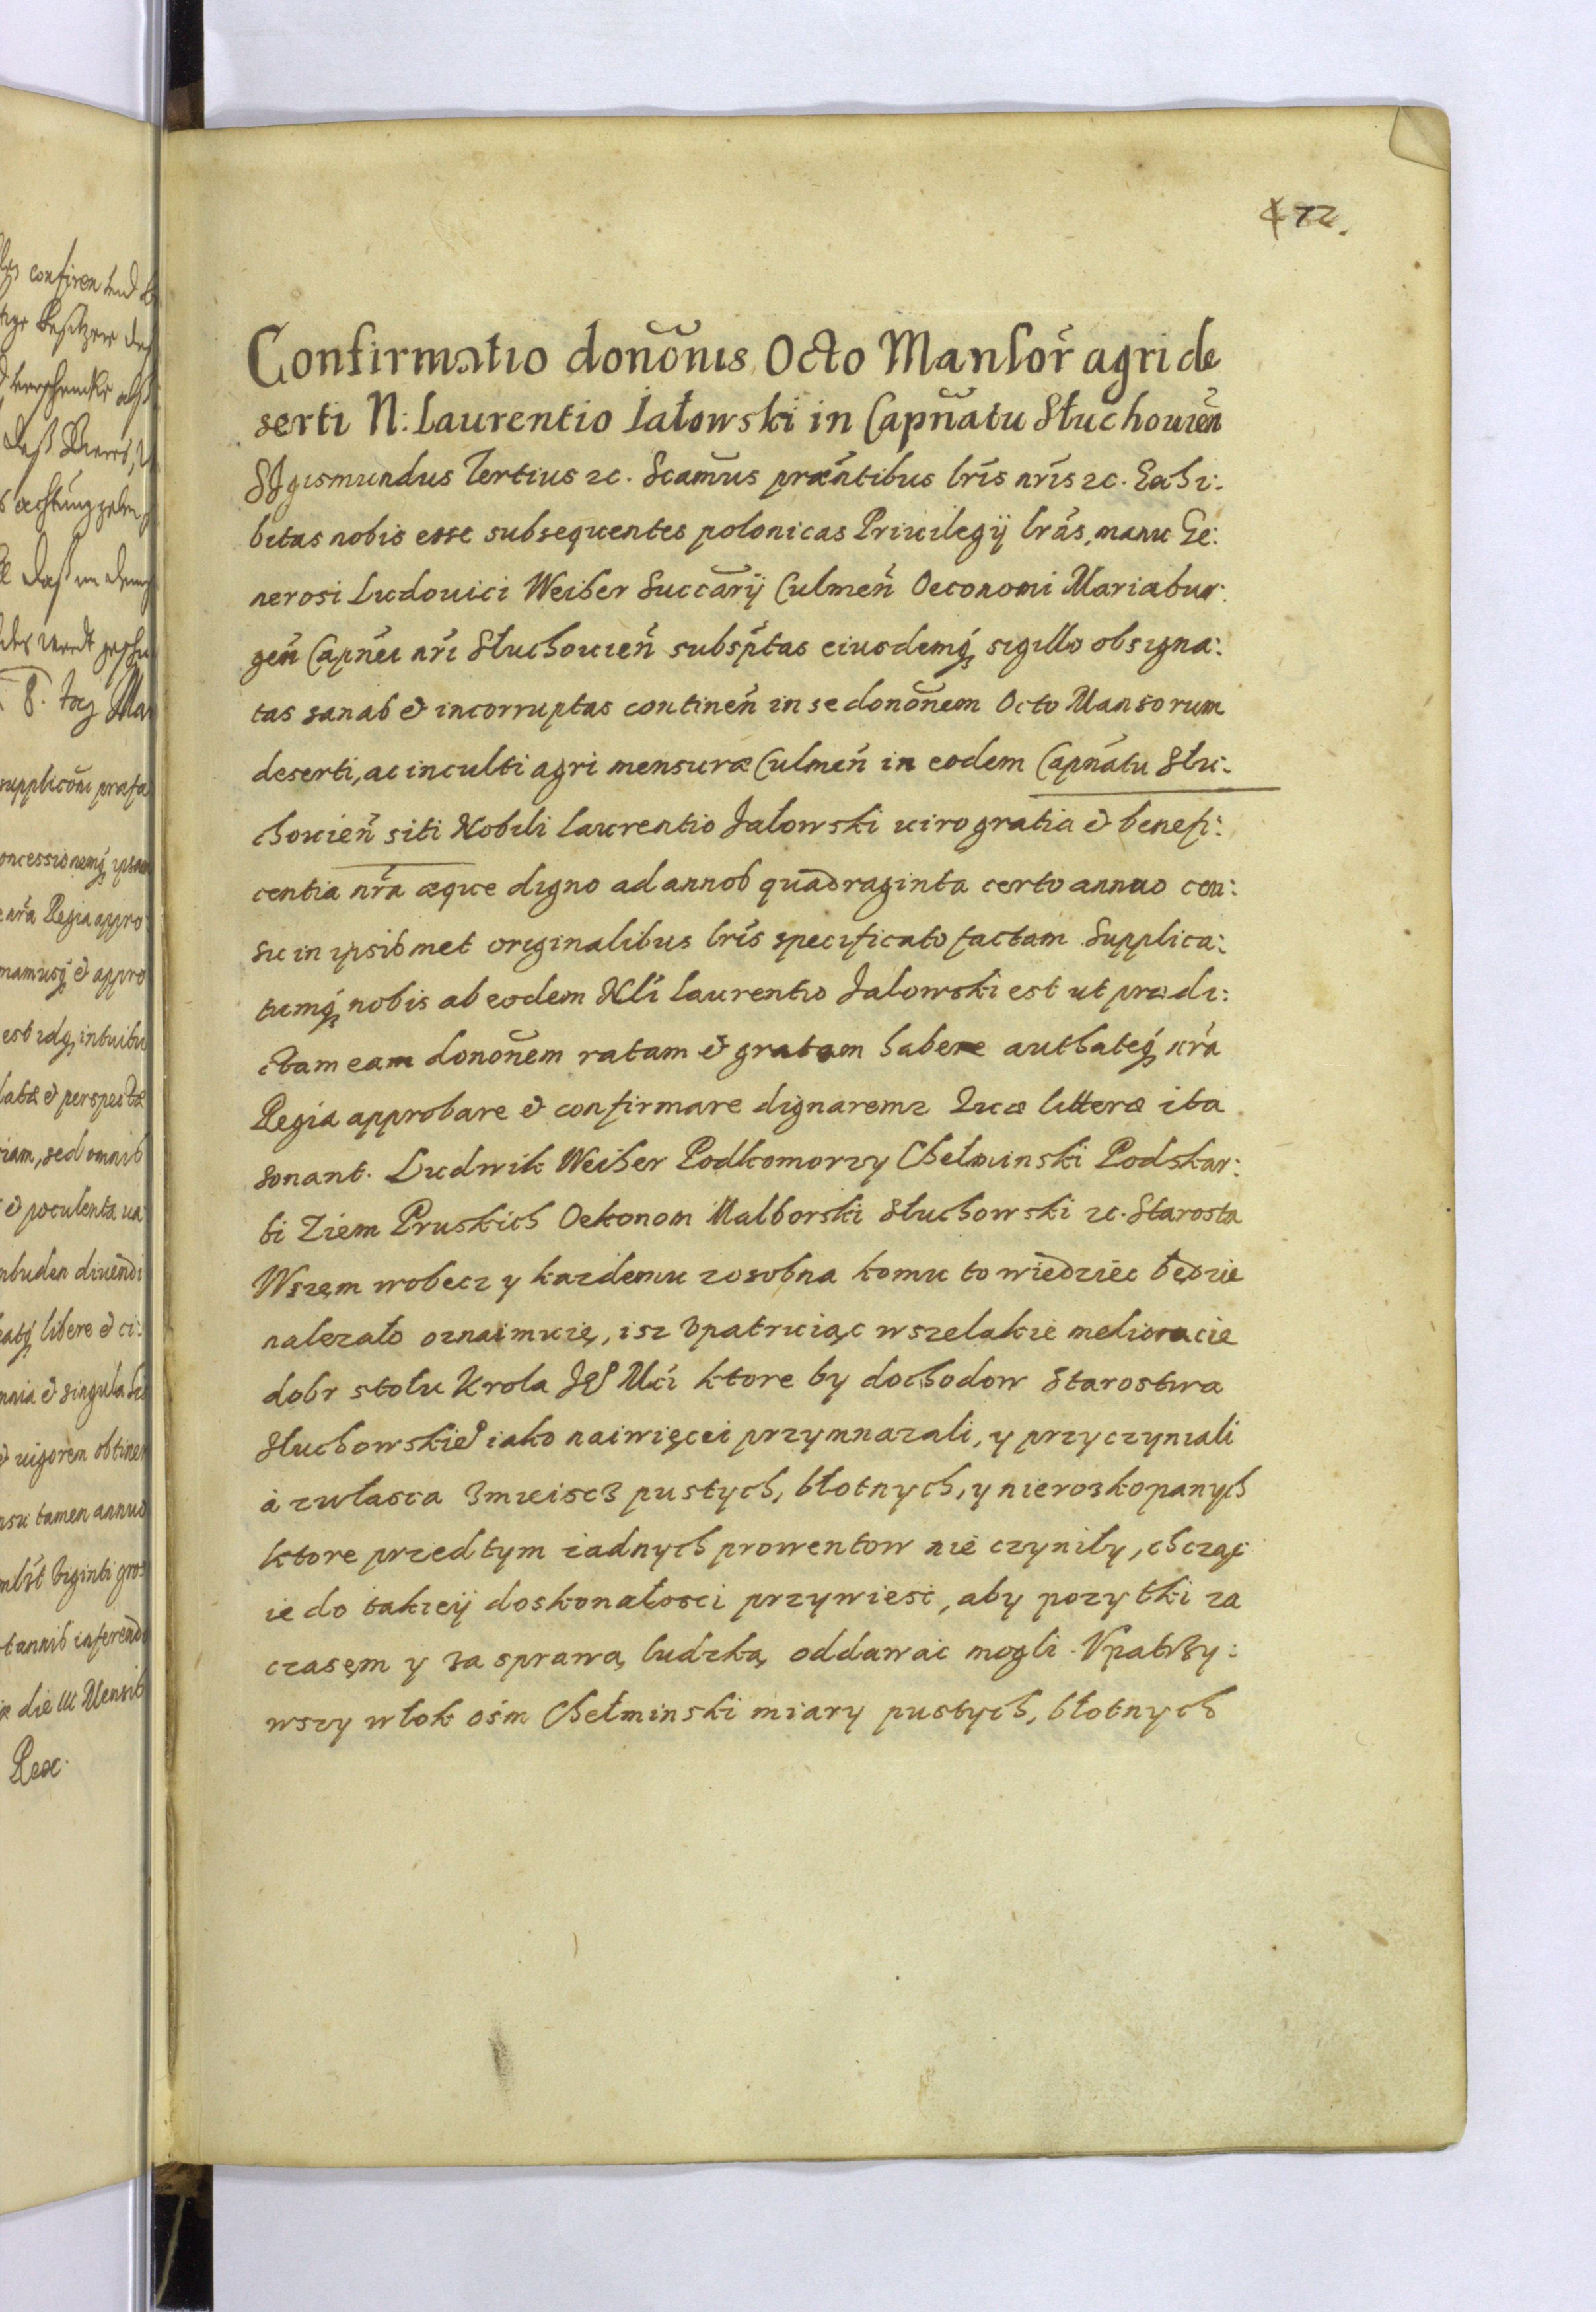 472.
Confirmatio donõnis Octo Mansoř agri de
serti N: Laurentio Jałowski in Capñatu Słuchouień
SJgismundus Tertius ꝛc. Scamus præńtibus lrís nrís ꝛc. Exhi:
bitas nobis esse subsequentes polonicas Priuilegij lrás, manu Ge:
nerosi Ludouici Weiher Succãrij Culmeń Oeconomi Mariabur:
geń Capnéi nrí Słuchouień subsp̃tas eiusdemq́ sigillo obsigna:
tas sanas & incorruptas contineń in se donõnem Octo Mansorum
deserti, ac inculti agri mensuræ Culmeń in eodem Capnátu Słu:
chouień siti Nobili Laurentio Jałowski uiro gratia & benefi:
centia nrá æque digno ad annos quadraginta certo annuo cen:
su in ipsismet originalibus lrís specificato factam Supplica:
tumq́ nobis ab eodem Nlí Laurentio Jalowski est ut prædi:
ctam eam donõnem ratam & gratam habere authateq́ nrá
Regia approbare & confirmare dignaremr Quæ litteræ ita
sonant. Ludwik Weiher Podkomorzy Chełminski Podskar:
bi Ziem Pruskich Oekonom Malborski Słuchowski ꝛc. Starosta
Wszem wobecz y kazdemu zosobna komu to wiedziéc będzie
nalezało oznaimuię, isz vpatruiąc wszelakie melioracie
dobr stołu Krola JE Mći ktore by dochodow Starostwa
Słuchowskie iako naiwięcei przymnazali, y przyczyniali
à zwłasca z mieiscz pustych, błotnych, y nierozkopanych
ktore przedtym zadnych prowentow nie czyniły, chcząc
ie do takieij doskonałosci przywiesć, aby pozytki za
czasęm y za sprawą ludzką oddawać mogli. Vpatrzy:
wszy włok ośm Chełminski miary pustych, błotnych